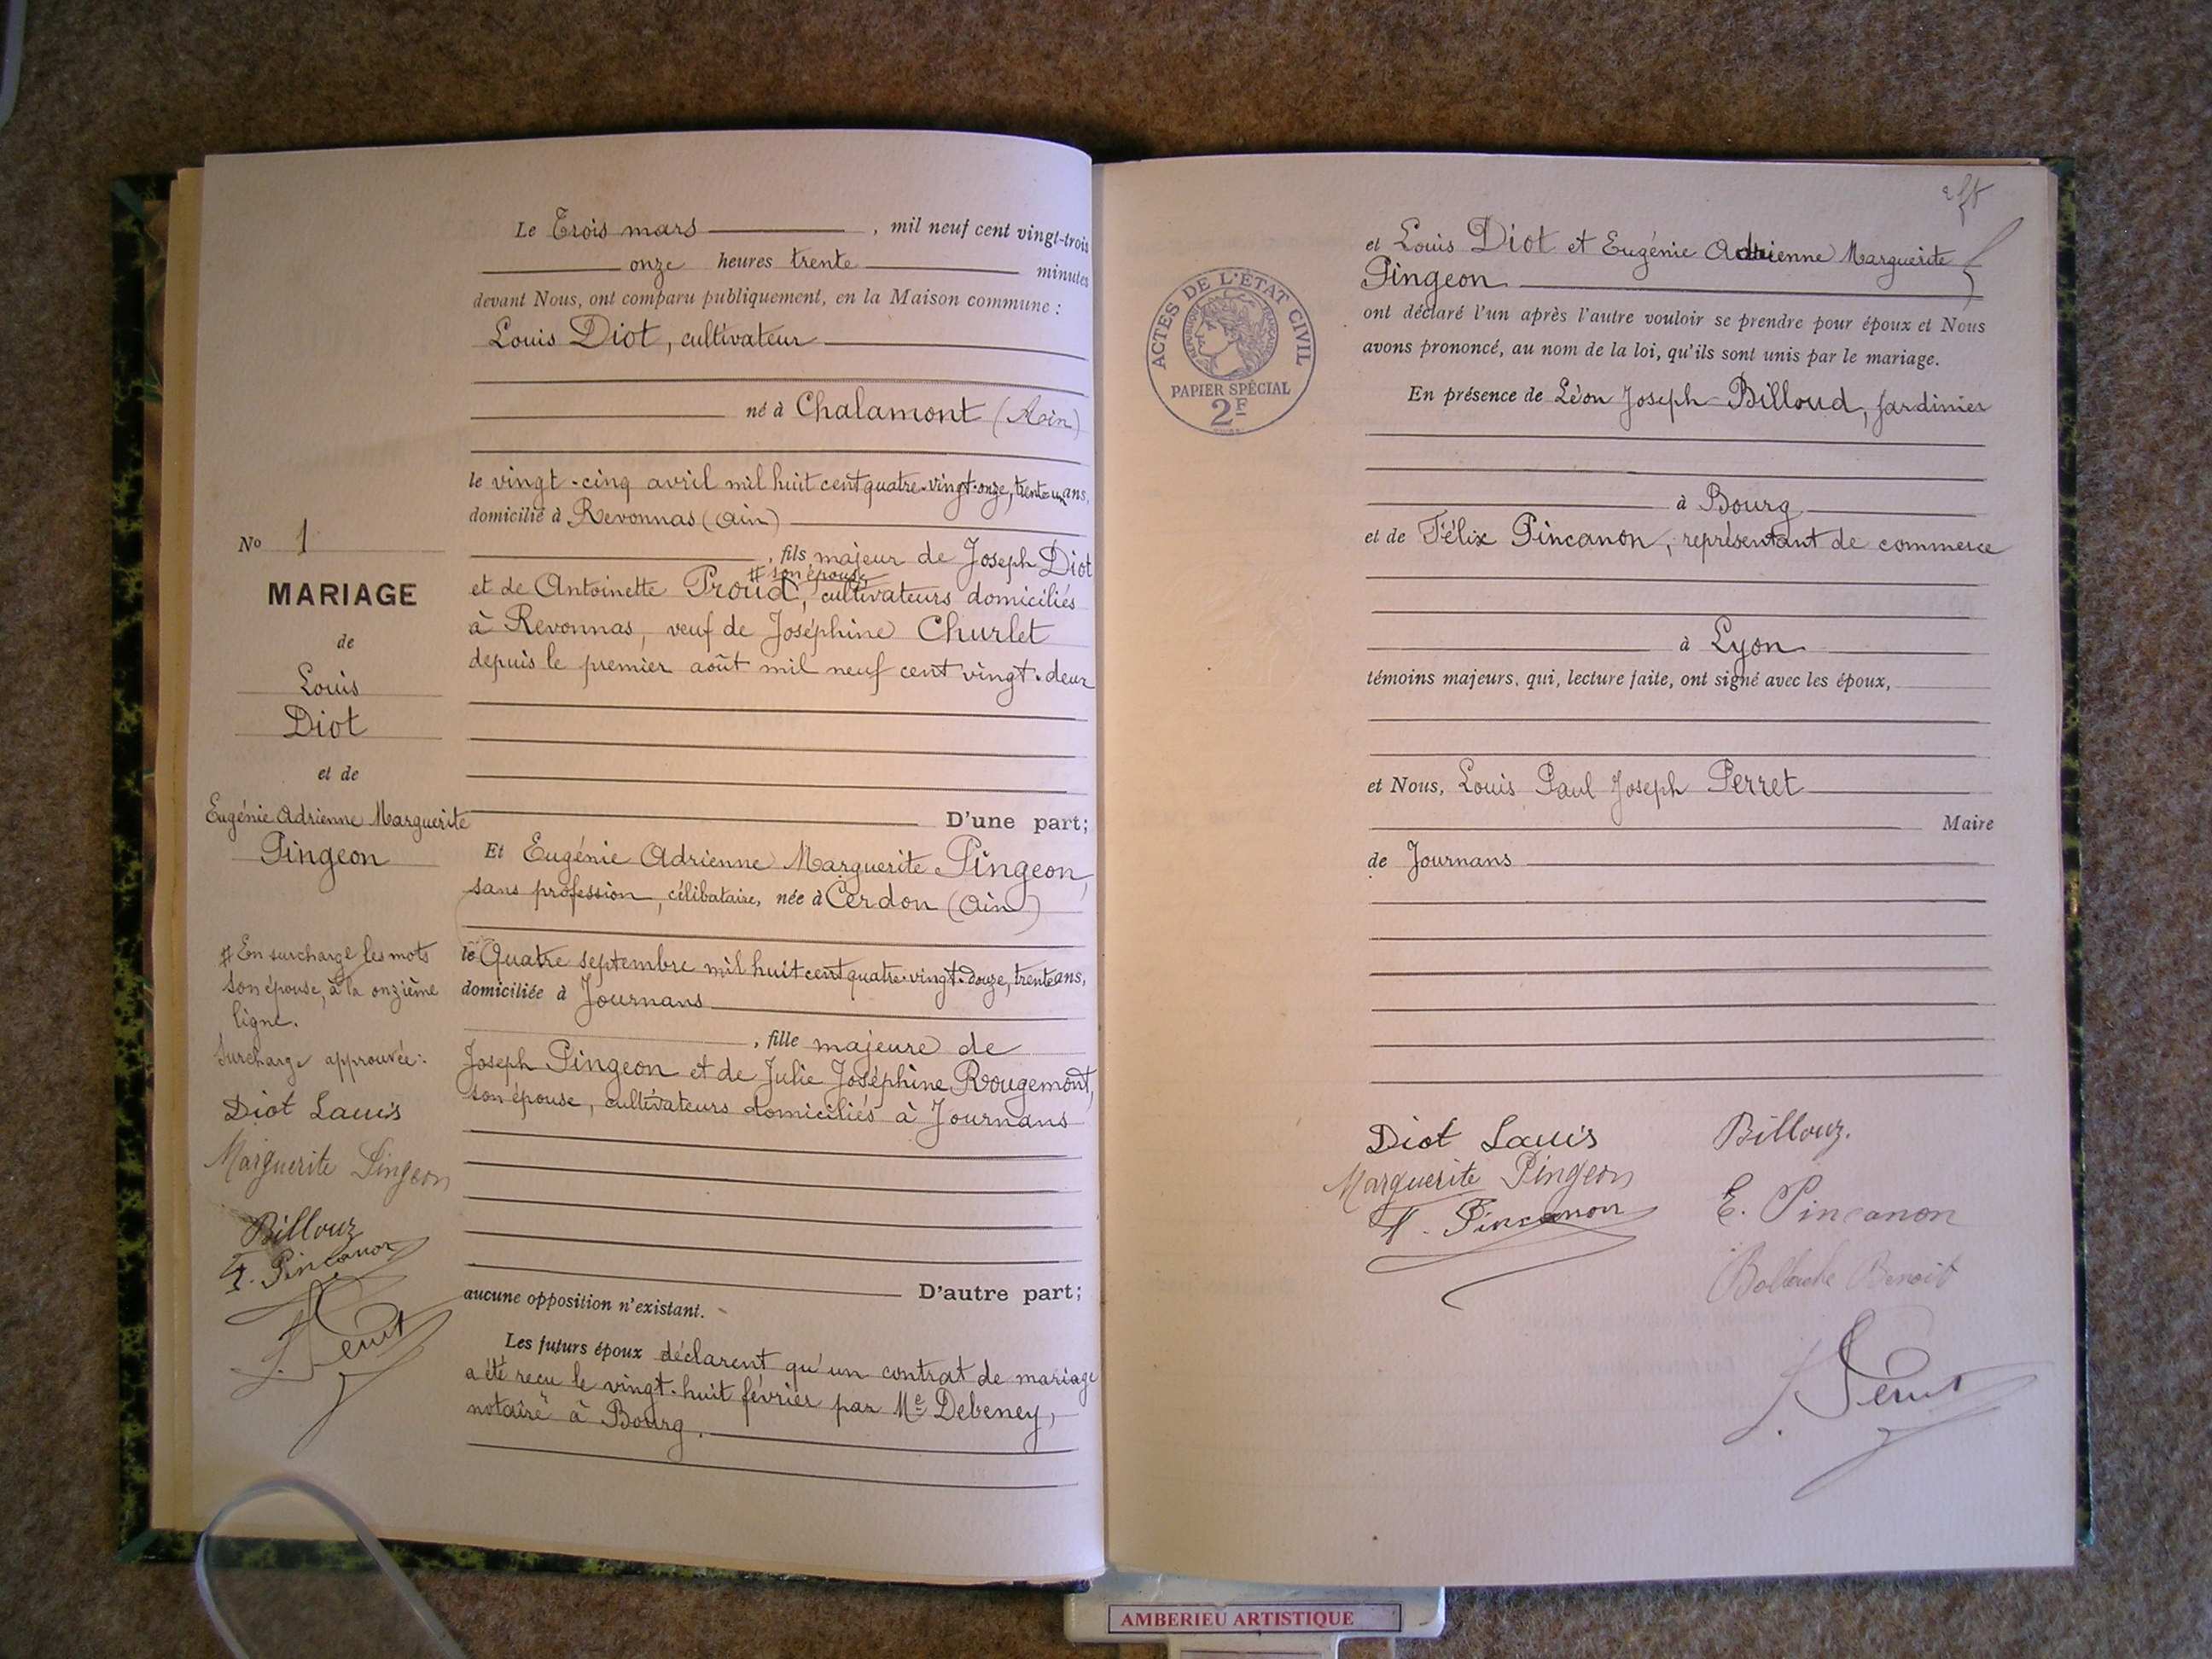 Nº 1
MARIAGE
de
Louis
Diot
et de
Eugénie Adrienne Marguerite
Pingeon
# En surcharge les mots
son épouse, à la onzième
ligne.
Surcharge approuvée:
Diot Louis
Marguerite Pingeon
Billouz
F. Pincanon
Le Trois mars , mil neuf cent vingt-trois
onze heures trente minutes
devant Nous, ont comparu publiquement, en la Maison commune :
Louis Diot, cultivateur
né à Chalamont (Ain)
le vingt-cinq avril mil huit cent quatre-vingt-onze, trente un ans,
domicilié à Revonnas (Ain)
, fils majeur de Joseph Diot
# son épouse
et de Antoinette Proud, cultivateurs domiciliés
à Revonnas, veuf de Joséphine Churlet
depuis le premier août mil neuf cent vingt-deux
D'une part;
Et Eugénie Adrienne Marguerite Pingeon,
sans profession, célibataire, née à Cerdon (Ain)
le Quatre septembre mil huit cent quatre-vingt-douze, trente ans,
domiciliée à Journans
, fille majeure de
Joseph Pingeon et de Julie Joséphine Rougemont,
son épouse, cultivateurs domiciliés à Journans
D'autre part;
aucune opposition n'existant.
Les futurs époux déclarent qu'un contrat de mariage
a été reçu le vingt-huit février par Me Debeney,
notaire à Bourg.
ACTES DE L'ÉTAT CIVIL
RÉPUBLIQUE FRANÇAISE
PAPIER SPÉCIAL
2F
et Louis Diot et Eugénie Adrienne Marguerite
Pingeon
ont déclaré l'un après l'autre vouloir se prendre pour époux et Nous
avons prononcé, au nom de la loi, qu'ils sont unis par le mariage.
En présence de Léon Joseph Billoud, jardinier
à Bourg
et de Félix Pincanon, représentant de commerce
à Lyon
témoins majeurs, qui, lecture faite, ont signé avec les époux,
et Nous, Louis Paul Joseph Perret
Maire
de Journans
Diot Louis
Billouz.
Marguerite Pingeon
F. Pincanon
E. Pincanon
Benoit
AMBERIEU ARTISTIQUE